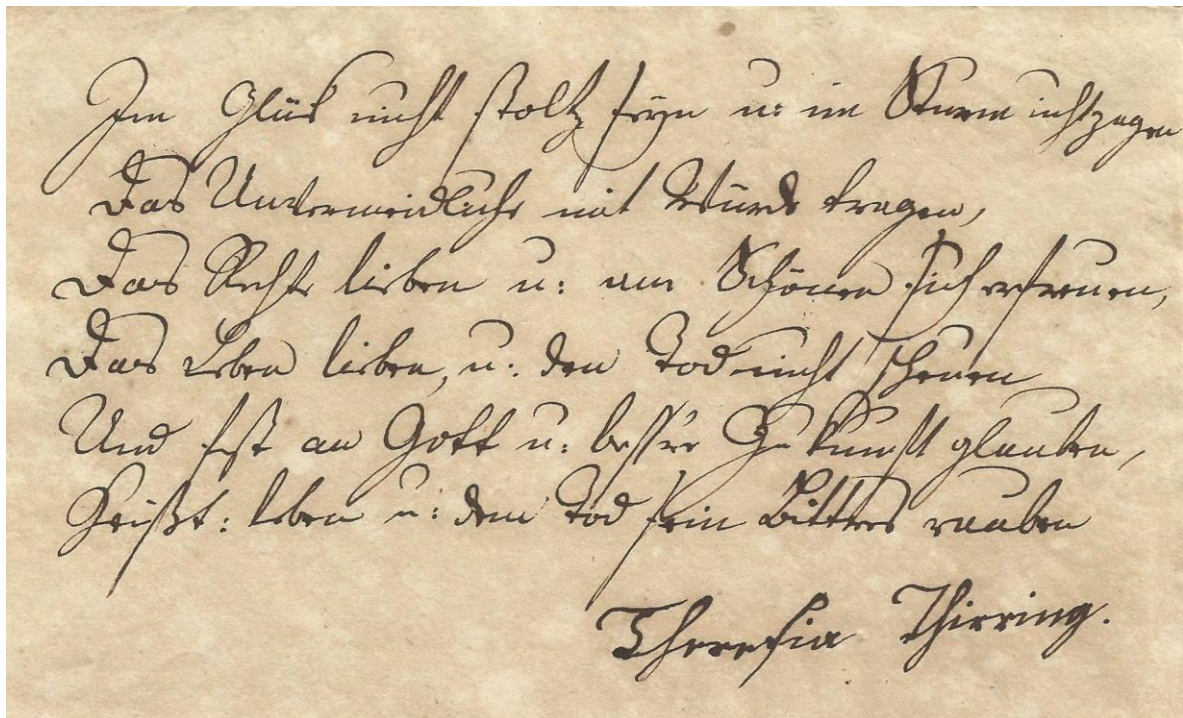 Im Glük nicht stoltz seyn u: im Sturm nicht zagen
Das Unvermeidliche mit Würde tragen,
Das Rechte lieben u: am Schönen sich erfreuen,
Das Leben lieben, u: den Tod nicht scheuen
Und fest an Gott u: bess're Zukunft glauben,
Heißt: leben u: dem Tod sein Bittres rauben
Theresia Thirring.